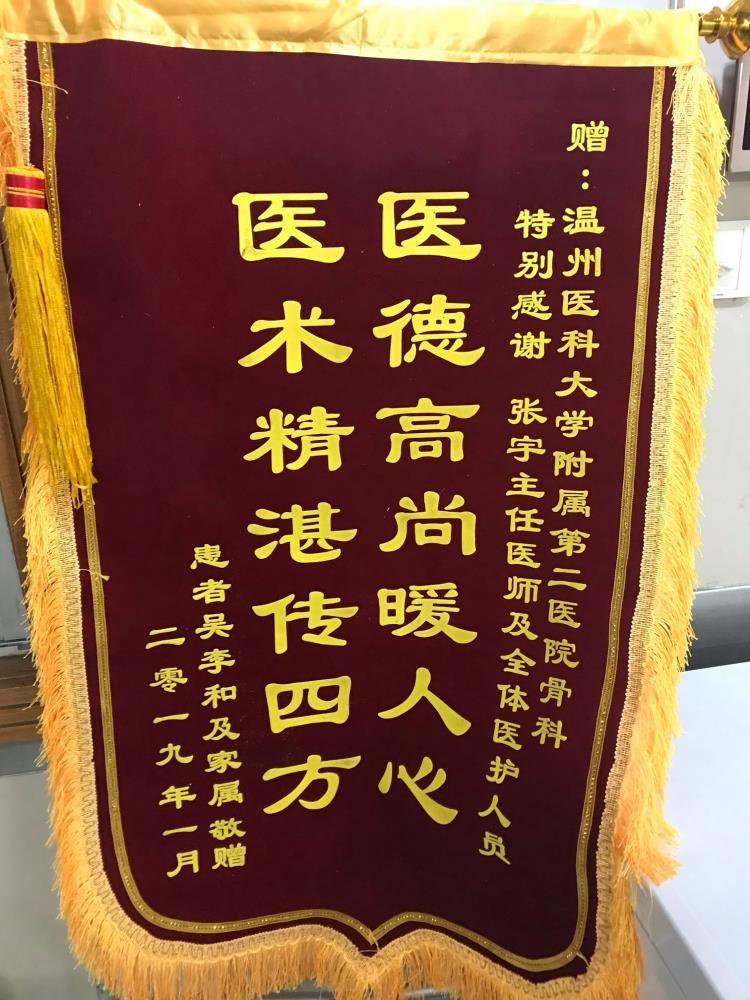 赠：温州医科大学附属第二医院骨科
特别感谢 张宇主任医师及全体医护人员
医德高尚暖人心
医术精湛传四方
患者吴李和及家属敬赠
二零一九年一月